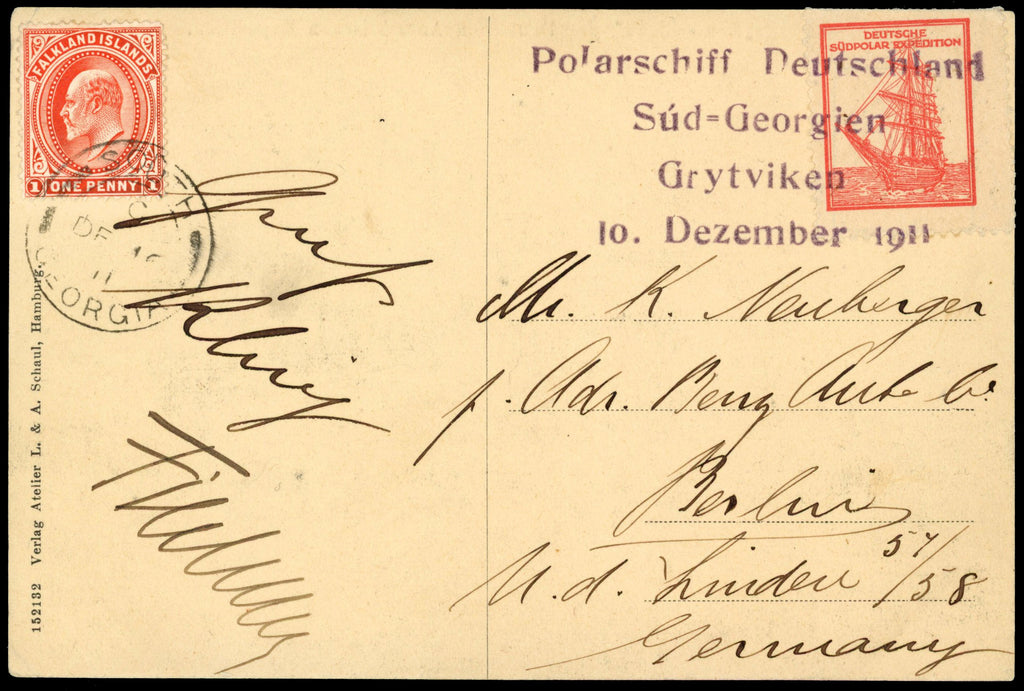 FALKLAND ISLANDS
1 ONE PENNY 1
GEORGIA
DEUTSCHE
SÜDPOLAR EXPEDITION
Polarschiff Deutschland
Süd=Georgien
Grytviken
10. Dezember 1911
Mr. K. Neuberger
p. Adr. Benz Auto
Berlin
U. d. Linden 57/58
Germany
152132 Verlag Atelier L. & A. Schaul, Hamburg.